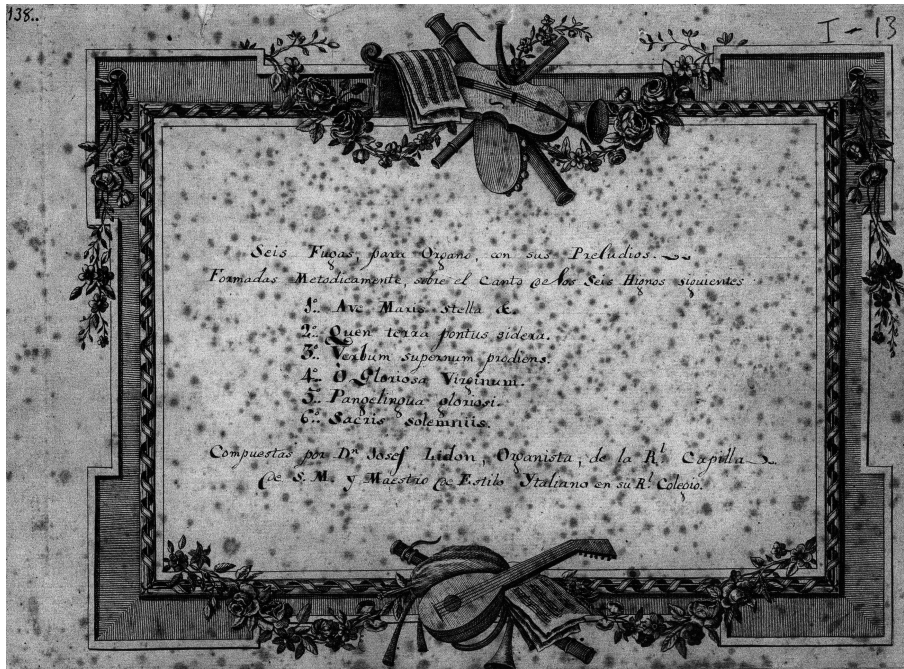 138..
I - 13
Seis Fugas, para Organo, con sus Preludios.
Formadas Metodicamente, sobre el Canto de los Seis Hignos siguientes
1º. Ave Maris stella &.
2º. Quen terra pontus sidera.
3º. Verbum supernum prodiens.
4º. O Gloriosa Virginum.
5º. Pangelingua gloriosi.
6º. Sacris solemniis.
Compuestas por Dn. Josef Lidon, Organista, de la Rl. Capilla
de S. M. y Maestro de Estilo Ytaliano en su Rl. Colegio.